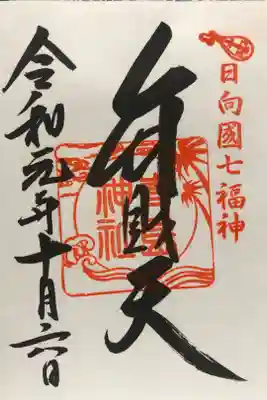 日向國七福神
弁財天
神社
令和元年十月六日